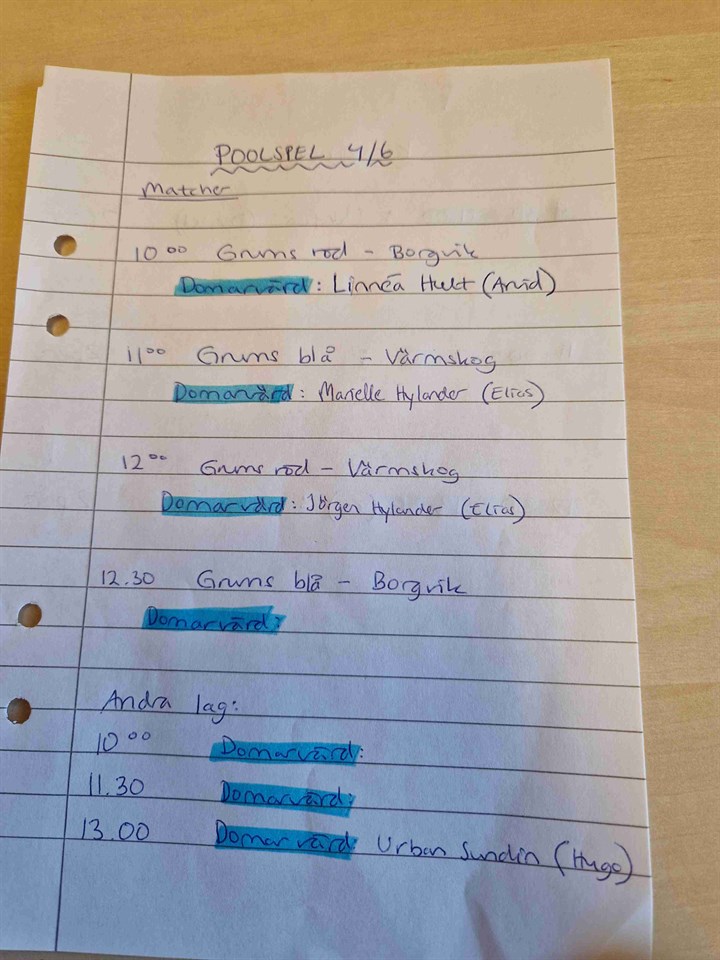 POOLSPEL 4/6
Matcher
10⁰⁰ Grums röd - Borgvik
Domarvärd: Linnéa Hult (Arvid)
11⁰⁰ Grums blå - Värmskog
Domarvärd: Marielle Hylander (Elias)
12⁰⁰ Grums röd - Värmskog
Domarvärd: Jörgen Hylander (Elias)
12.30 Grums blå - Borgvik
Domarvärd:
Andra lag:
10⁰⁰ Domarvärd:
11.30 Domarvärd:
13.00 Domarvärd: Urban Sundin (Hugo)